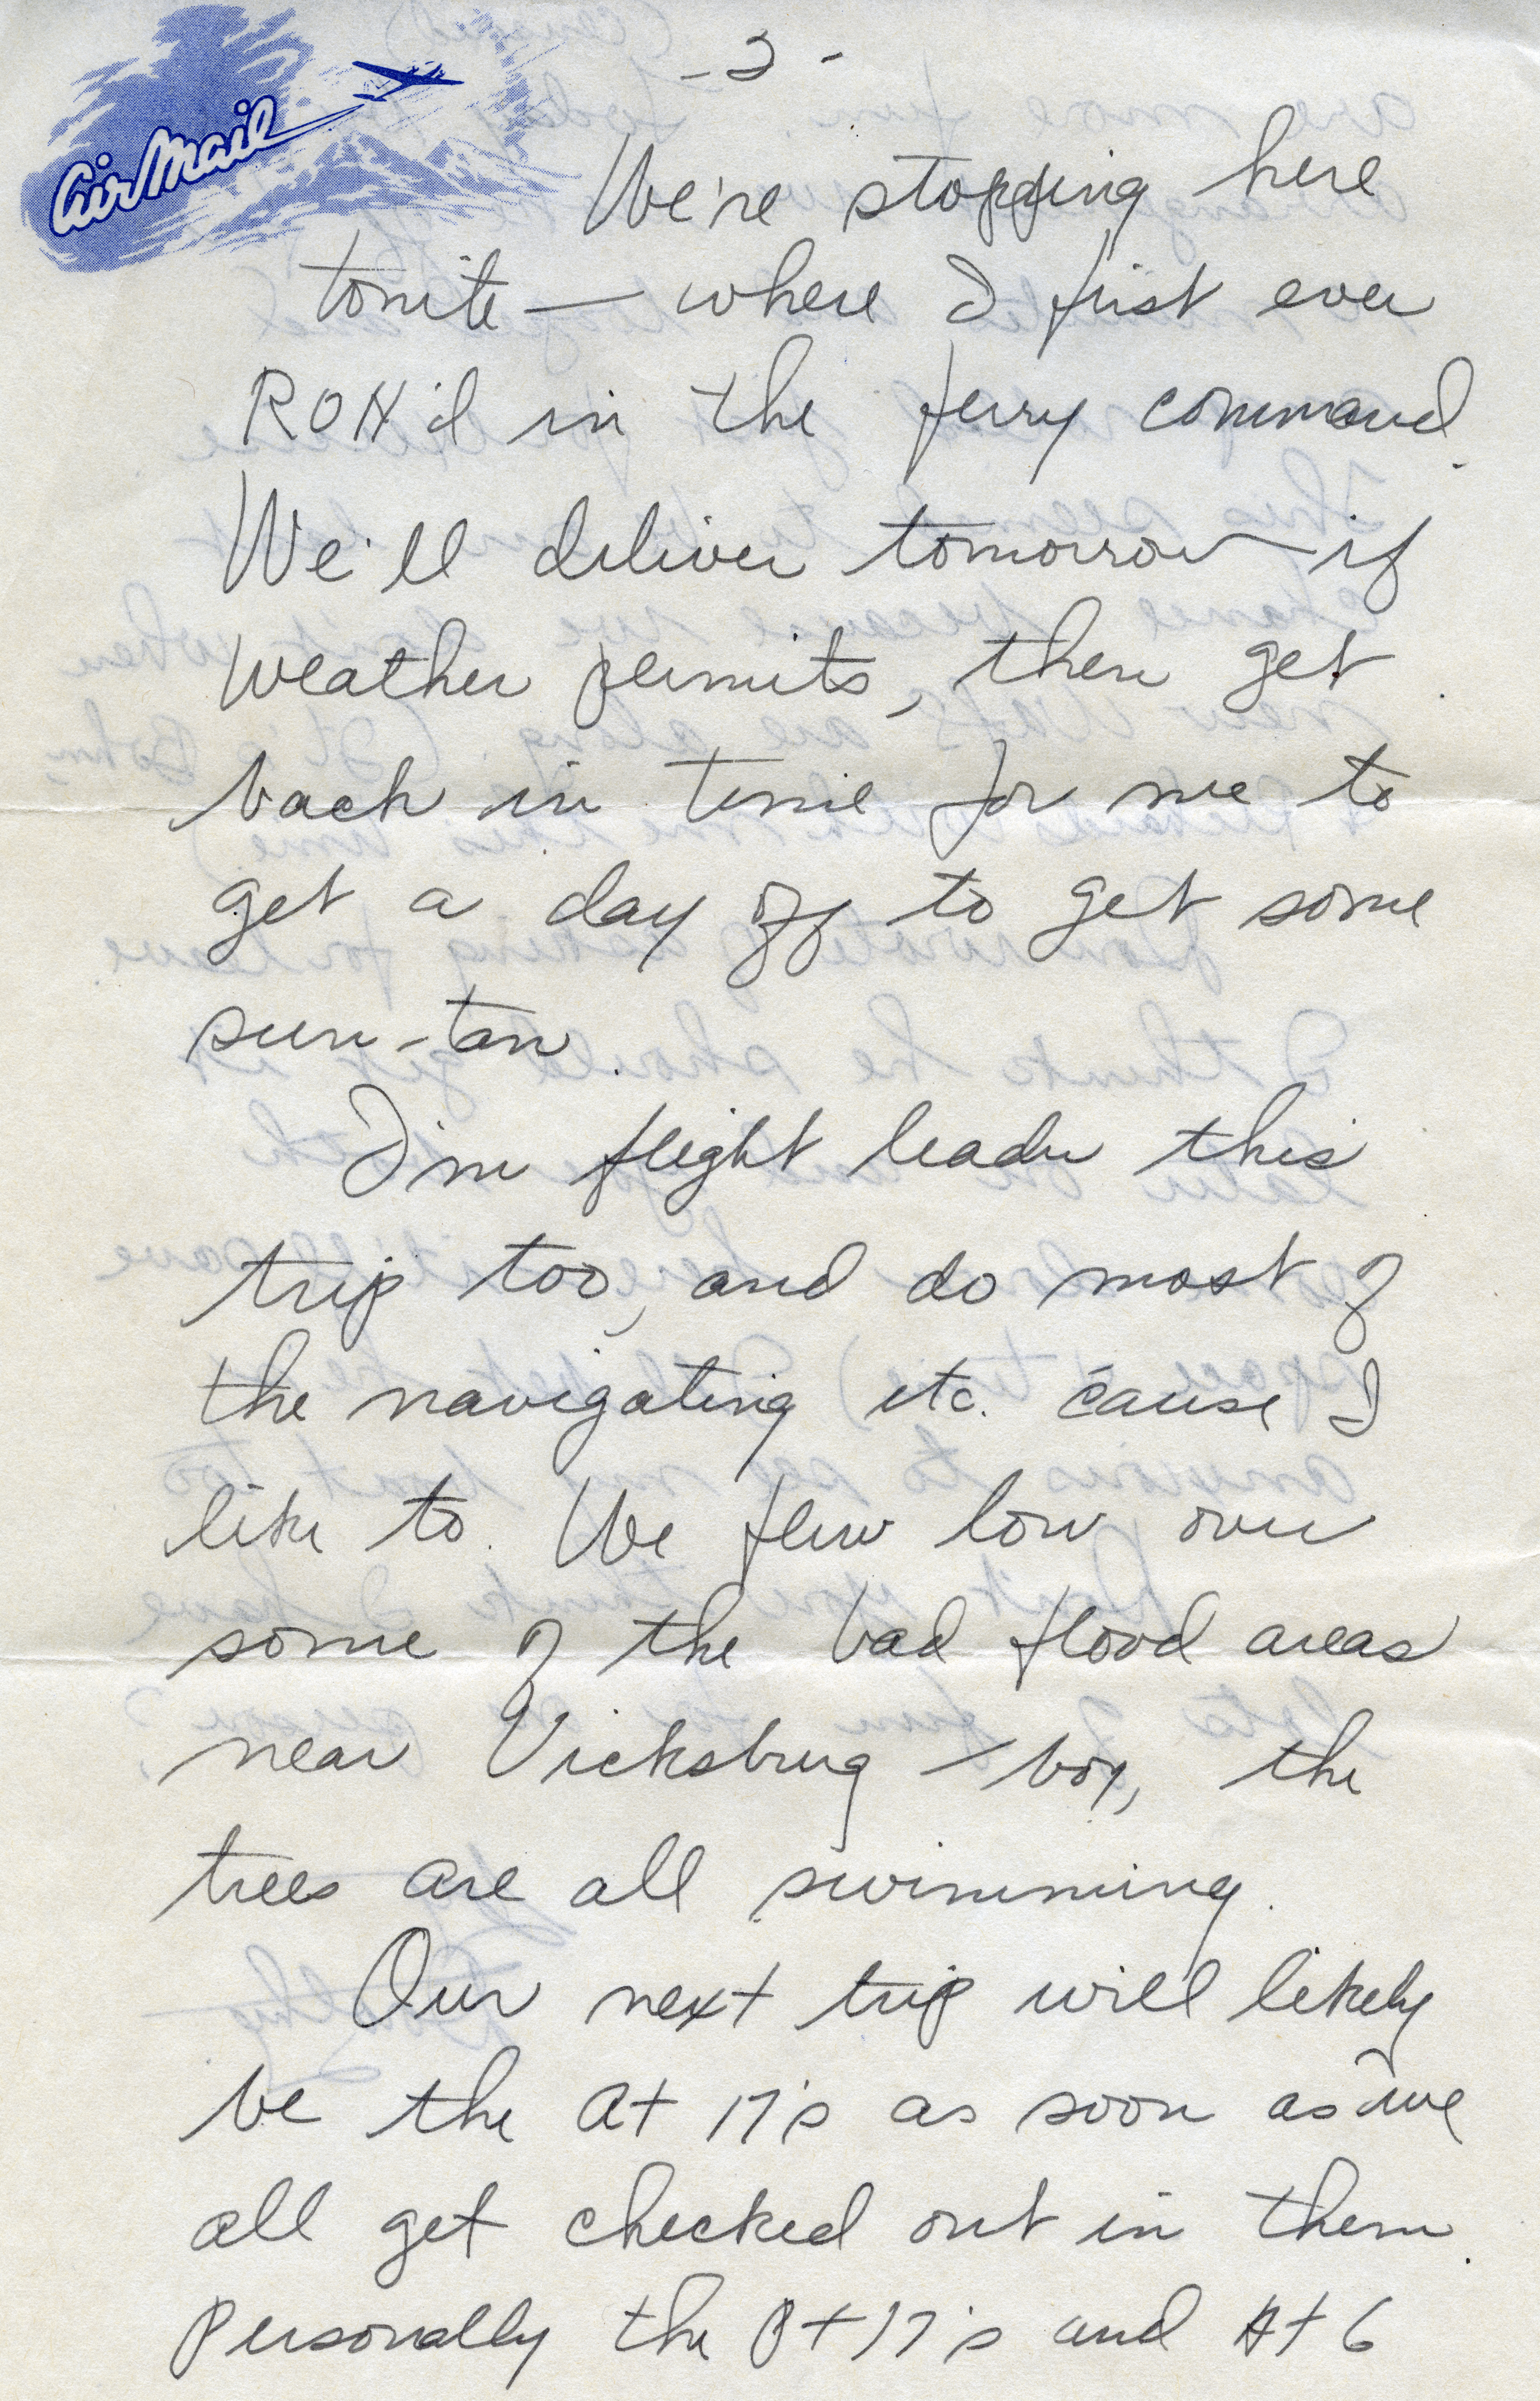 Air Mail
- 2 -
We're stopping here
tonite — where I first ever
RON'd in the ferry command.
We'll deliver tomorrow — if
weather permits, then get
back in time for me to
get a day off to get some
sun-tan.
I'm flight leader this
trip too, and do most of
the navigating etc. 'cause I
like to. We flew low over
some of the bad flood areas
near Vicksburg — boy, the
trees are all swimming.
Our next trip will likely
be the At 17's as soon as we
all get checked out in them.
Personally the Pt 17's and At 6